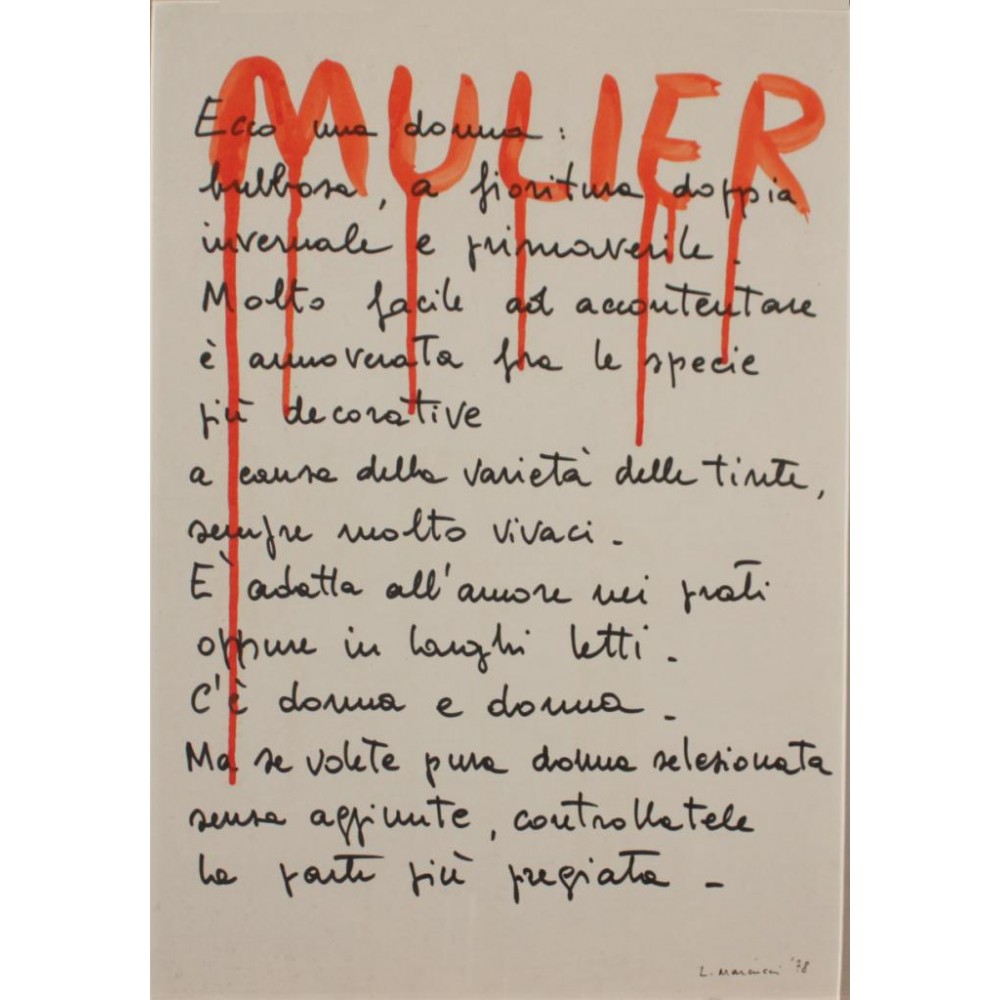 MULIER
Ecco una donna:
bulbosa, a fioritura doppia
invernale e primaverile.
Molto facile ad accontentare
è annoverata fra le specie
più decorative
a causa della varietà delle tinte,
sempre molto vivaci.
E' adatta all'amore nei prati
oppure in larghi letti.
C'è donna e donna.
Ma se volete pura donna selezionata
senza aggiunte, controllatele
la parte più pregiata.
L. Marcucci '78